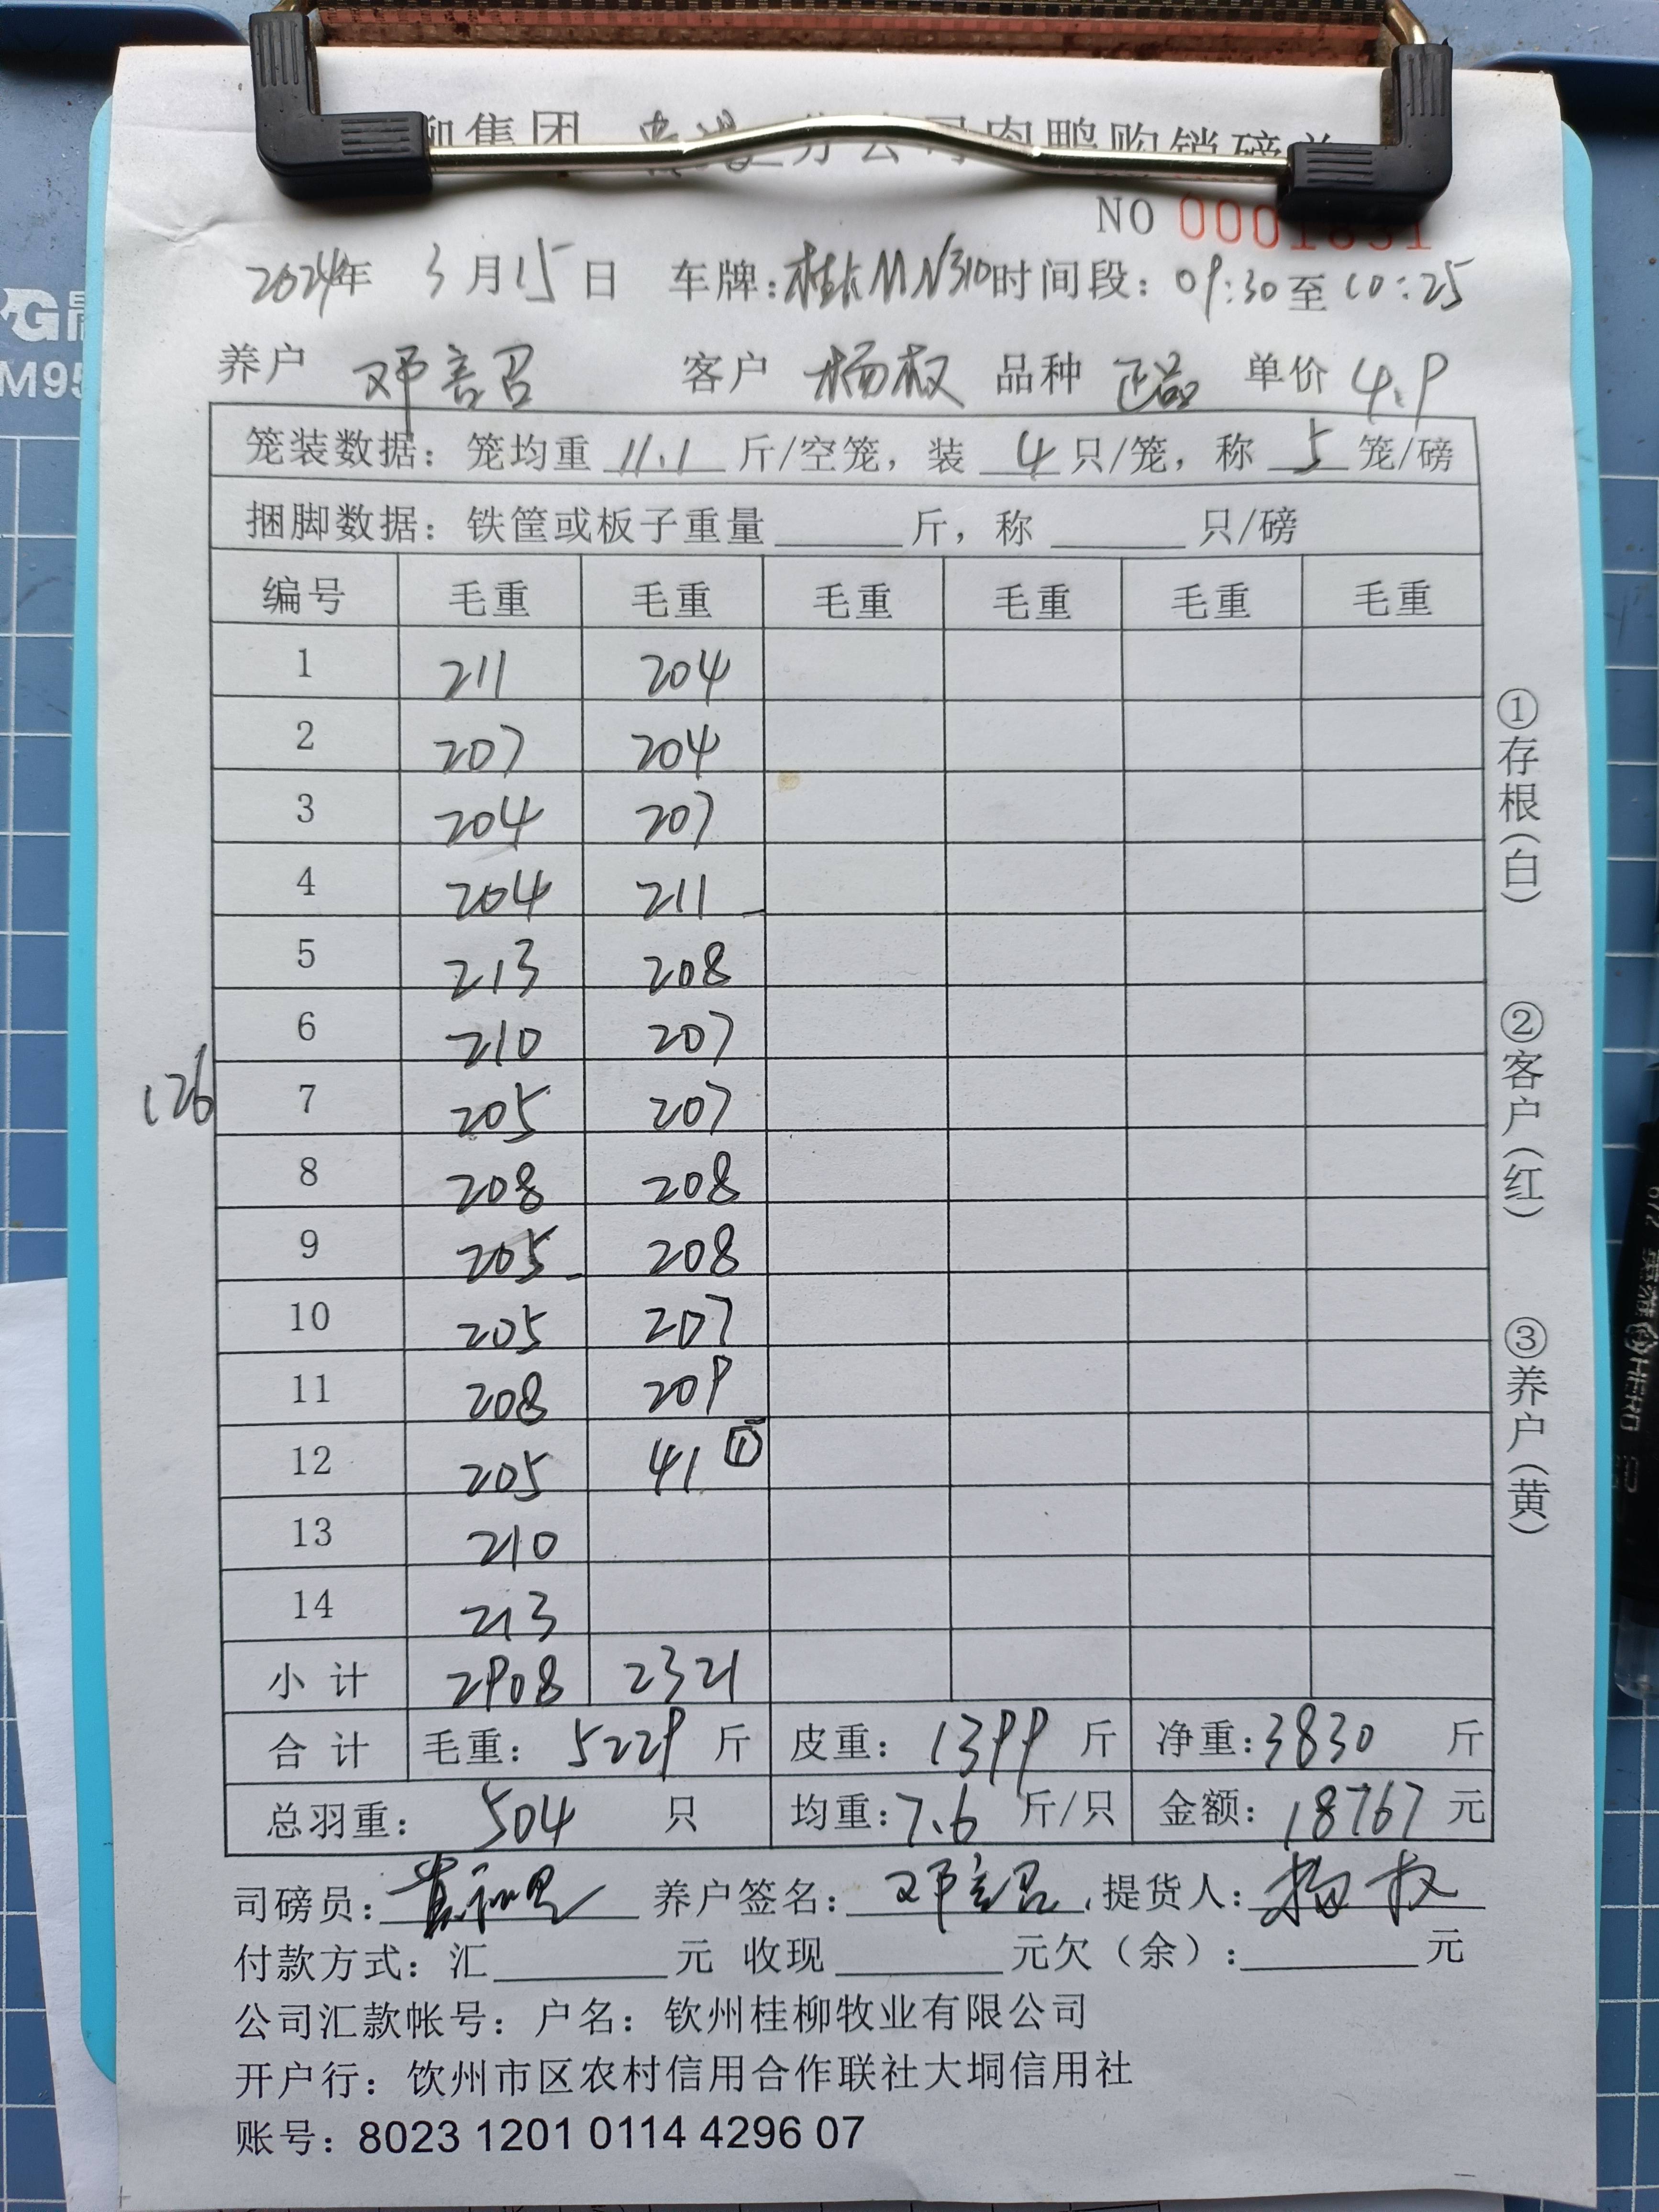 柳集团 贵港 分公司肉鸭购销磅单
NO 0001831
2024年 3月15日 车牌: MN310 时间段: 09:30至10:25
养户 邓善召 客户 杨权 品种 正品 单价 4.9
笼装数据: 笼均重 11.1 斤/空笼, 装 4 只/笼, 称 5 笼/磅
捆脚数据: 铁筐或板子重量______斤, 称______只/磅
编号 毛重 毛重 毛重 毛重 毛重 毛重
1 211 204
2 207 204
3 204 207
4 204 211
5 213 208
6 210 207
126
7 205 207
8 208 208
9 205 208
10 205 207
11 208 209
12 205 41 ①
13 210
14 213
小计 2908 2321
合计 毛重: 5229 斤 皮重: 1399 斤 净重: 3830 斤
总羽重: 504 只 均重: 7.6 斤/只 金额: 18767 元
司磅员: 养户签名: 邓善召 提货人: 杨权
付款方式: 汇______元 收现______元欠(余):______元
公司汇款帐号: 户名: 钦州桂柳牧业有限公司
开户行: 钦州市区农村信用合作联社大垌信用社
账号: 8023 1201 0114 4296 07
①存根(白)
②客户(红)
③养户(黄)
M95
HERO